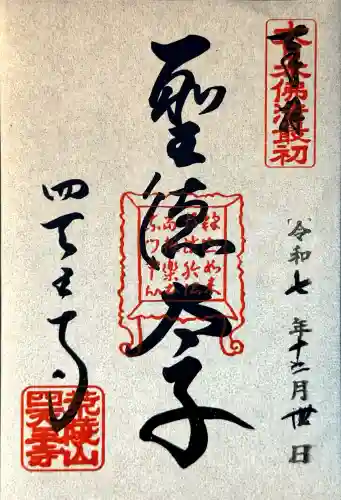 奉拝
大日本佛法最初
令和七年十二月卅日
聖徳太子
四天王寺
荒陵山
四天王寺